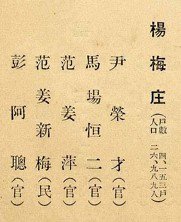 楊梅庄
(戶數 四、一五三戶
人口 二六、九八九人)
尹榮才(官)
馬場恒二(官)
范姜萍(官)
范姜新梅(民)
彭阿聰(官)